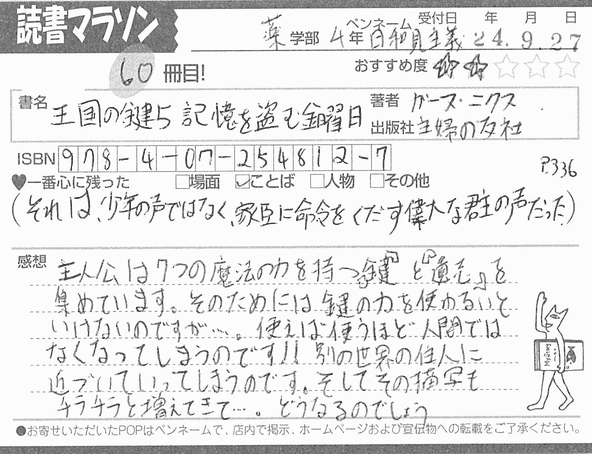 読書マラソン
ペンネーム 受付日 年 月 日
薬 学部 4年 日和見主義 24.9.27
60 冊目!
おすすめ度 ☆☆☆☆☆
書名 王国の鍵5 記憶を盗む金曜日
著者 ガース・ニクス
出版社 主婦の友社
ISBN 978-4-07-254812-7
P.336
♥一番心に残った □場面 ☑ことば □人物 □その他
(それは、少年の声ではなく、家臣に命令をくだす偉大な君主の声だった)
感想 主人公は7つの魔法の力を持つ『鍵』と『遺言』を
集めています。そのためには鍵の力を使わないと
いけないのですが…。使えば使うほど人間では
なくなってしまうのです!! 別の世界の住人に
近づいていってしまうのです。そしてその描写も
チラチラと増えてきて…。どうなるのでしょう
●お寄せいただいたPOPはペンネームで、店内で掲示、ホームページおよび宣伝物への転載をご了承ください。